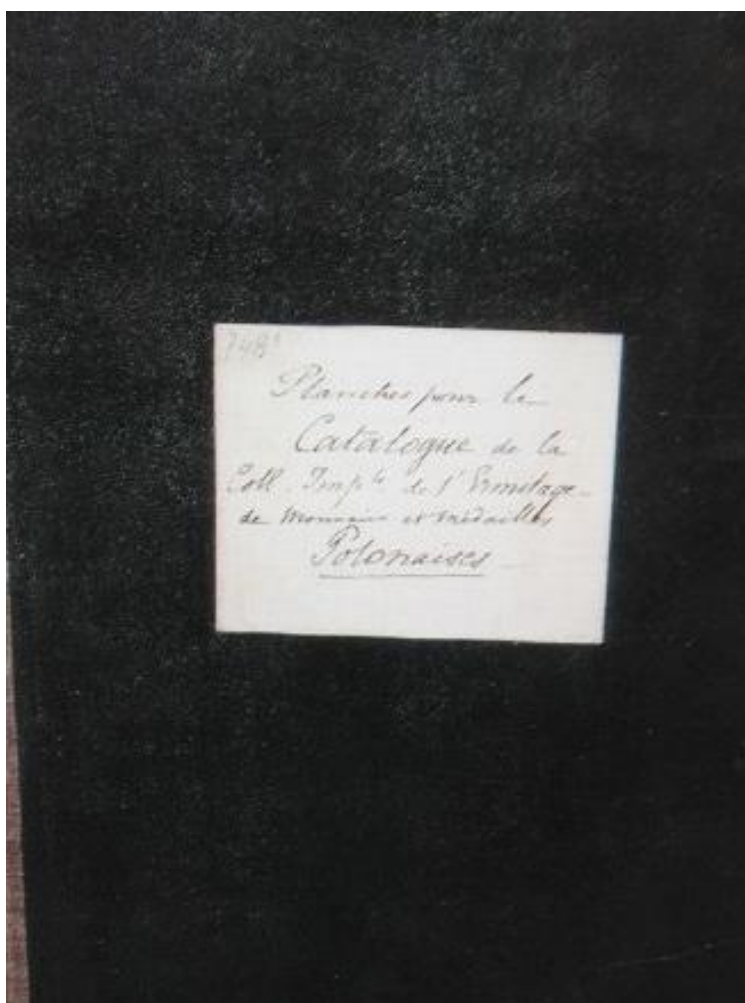 748
Planches pour le
Catalogue de la
Coll. Imp.le de l'Ermitage
de Monnaies et Médailles
Polonaises